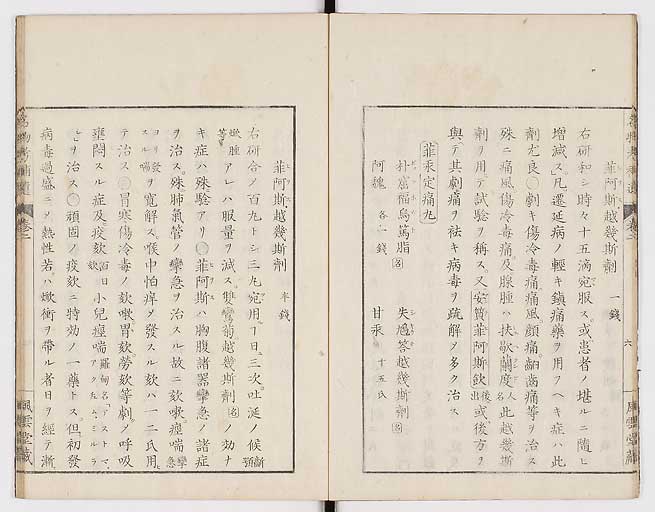 菲阿斯越幾斯劑 一錢
右研和シ時々十五滴宛服ス。或ハ患者ノ堪ルニ隨ヒ
増減ス。凡遷延病ノ輕キ鎮痛藥ヲ用フヘキ症ハ此
劑尤良。劇キ傷冷毒痛。痛風。顔痛。齲歯痛等ヲ治ス
殊ニ痛風。傷冷毒痛及腺腫ハ扶歇蘭度人名此越幾斯
劑ヲ用テ試驗ヲ稱ス。又安質菲阿斯飲出後或後方ヲ
與テ其劇痛ヲ袪キ病毒ヲ疏解ヲ多ク治ス
菲汞定痛丸
朴屈福烏篤脂名 失鳩答越幾斯劑名
阿魏 各一錢 甘汞 十五氏
菲阿斯越幾斯劑 半錢
右研合ノ百九トシ三丸宛用丁日ニ三次。吐涎ノ候齗頰
焮腫等アレハ服量ヲ減ス。雙鸞菊越幾斯劑名ノ功ナ
キ症ハ殊驗アリ○菲阿斯ハ胸腹諸器攣急ノ諸症
ヲ治ス。殊肺氣管ノ攣急ヲ治スル故ニ欬嗽。痙喘攣急
ヨリ發スル喘ヲ寛解ス。喉中怕痒メ發スル欬ハ一二氏用
テ治ス○冒寒傷冷毒ノ欬嗽。胃欬。勞欬等劇ク呼吸
壅悶スル症及痰欬百日欬小兒痙喘羅甸名アストマ、アクたム、ミルラ
ヒヲ治ス○頑固ノ痰欬ニ特効ノ一藥トス。但初發
病毒過盛ニメ熱性若ハ焮衝ヲ帶ル者日ヲ經テ漸
六
風雲堂藏
卷二
風雲堂藏